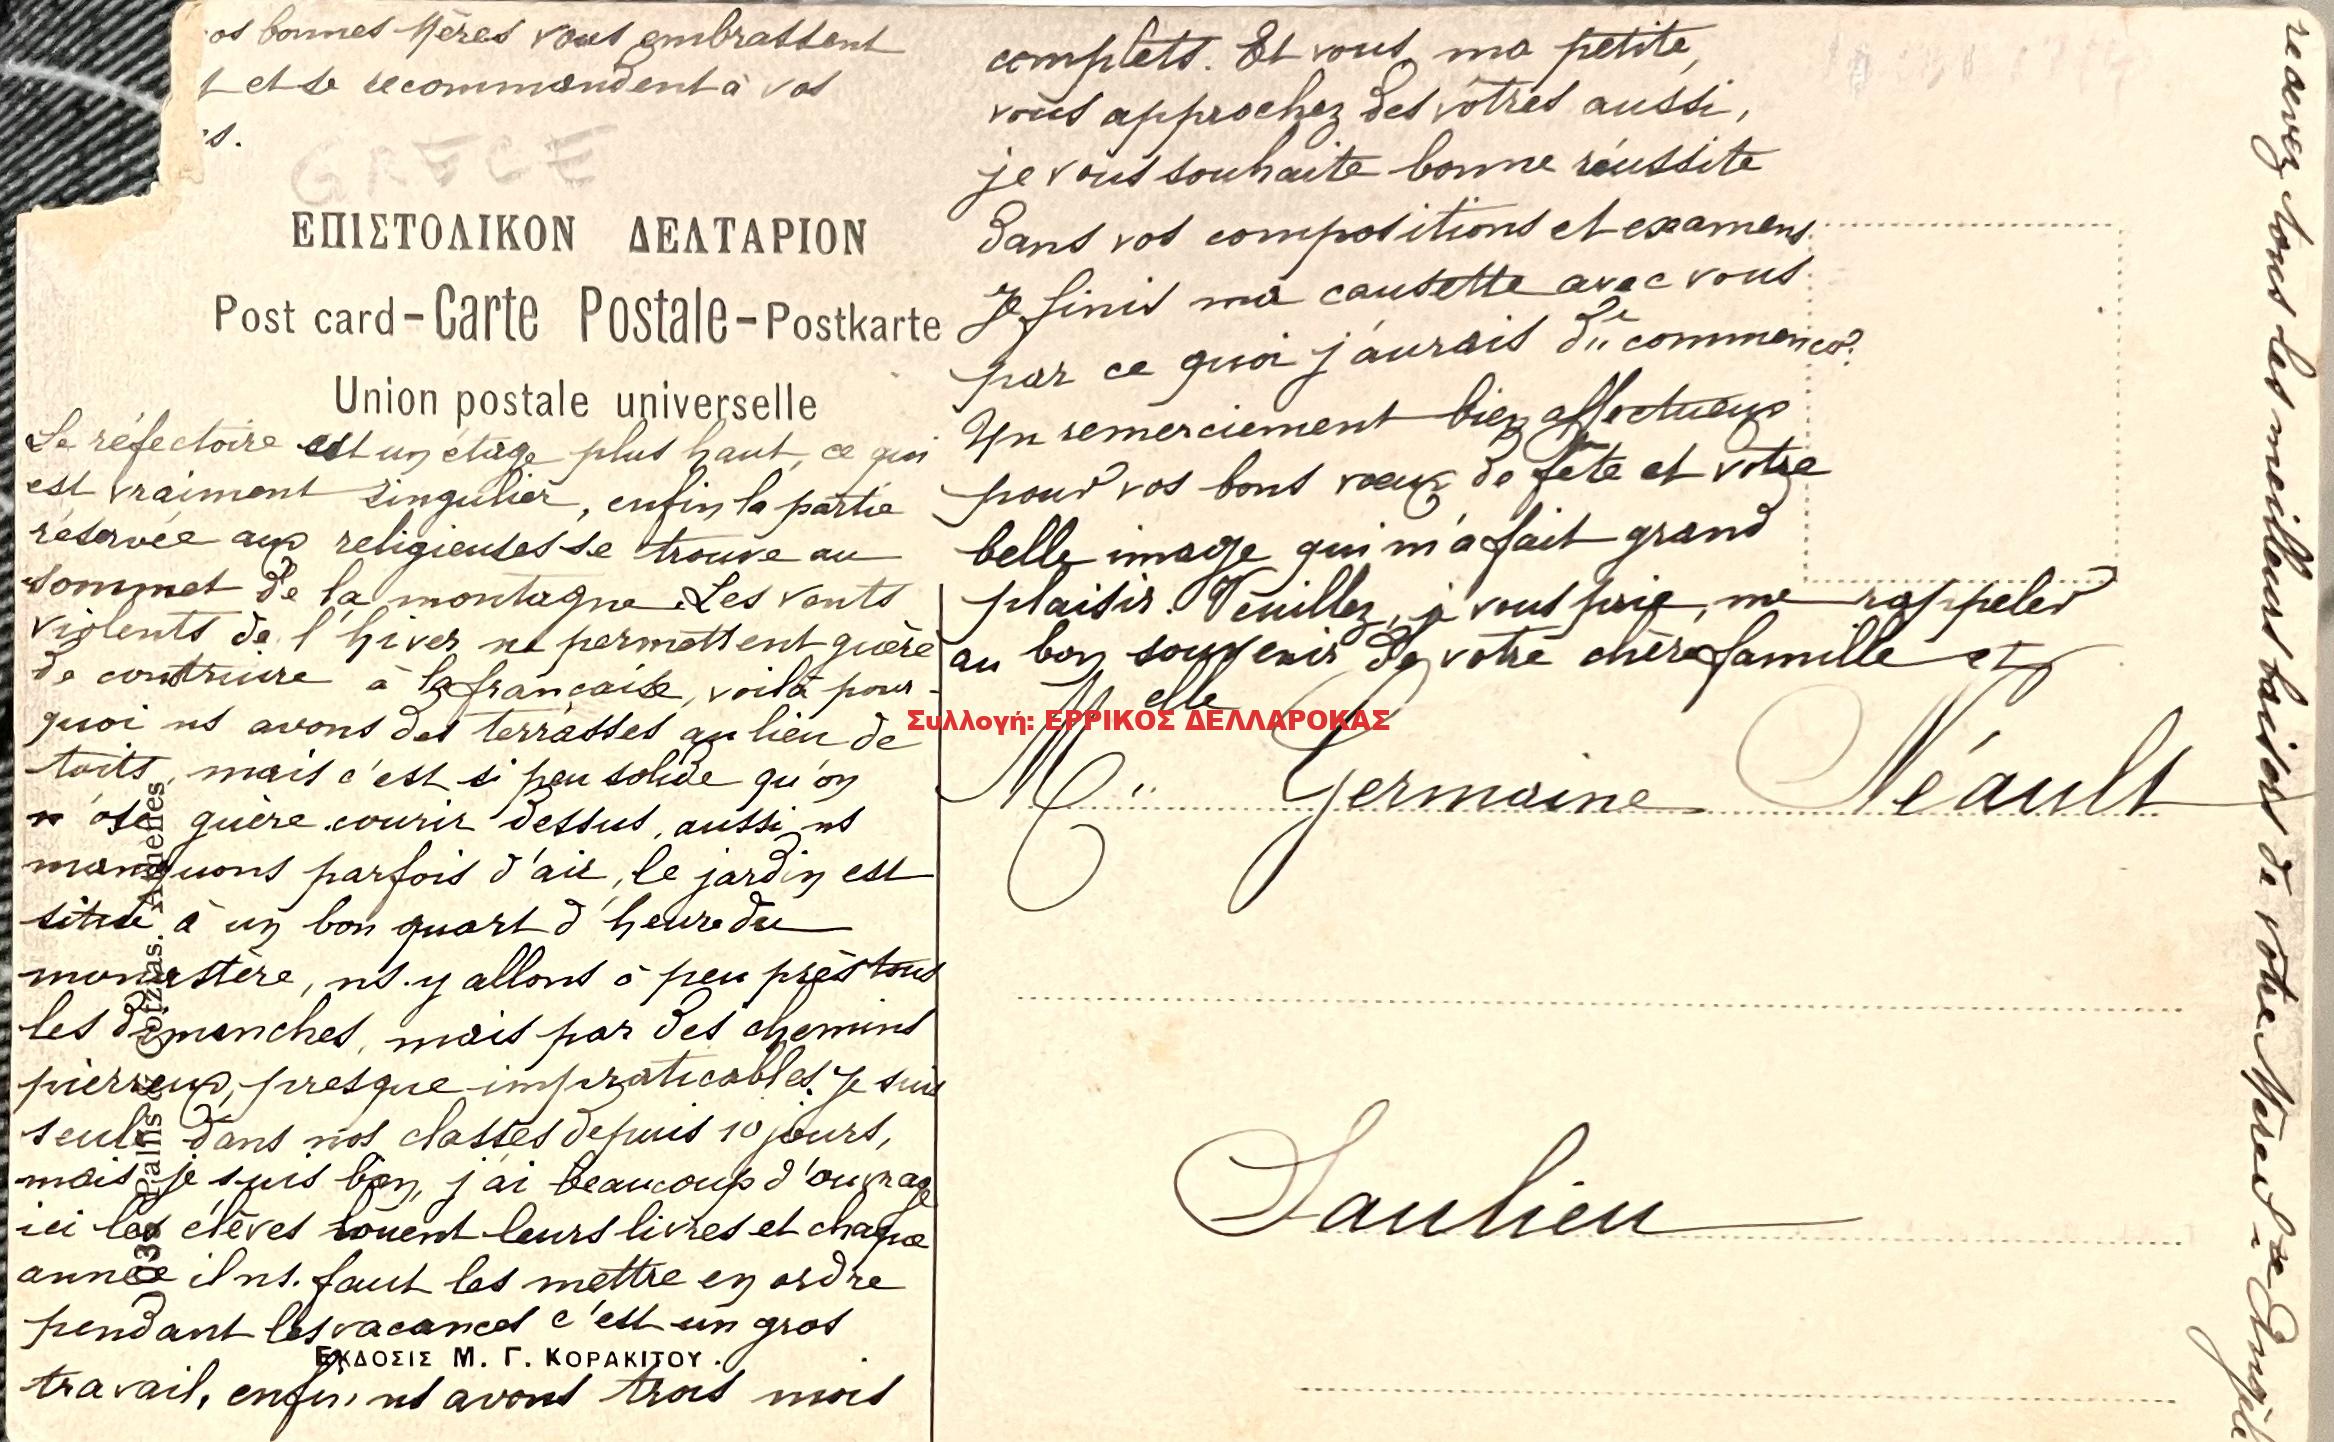 os bonnes Mères vous embrassent
t et se recommandent à vos
es.
GRECE
ΕΠΙΣΤΟΛΙΚΟΝ ΔΕΛΤΑΡΙΟΝ
Post card-Carte Postale-Postkarte
Union postale universelle
Le réfectoire est un étage plus haut, ce qui
est vraiment singulier, enfin la partie
réservée aux religieuses se trouve au
sommet de la montagne. Les vents
violents de l'hiver ne permettent guère
de construire à la française, voilà pour-
quoi ns avons des terrasses au lieu de
toits, mais c'est si peu solide qu'on
n'ose guère courir dessus, aussi ns
manquons parfois d'air, le jardin est
situé à un bon quart d'heure du
monastère, ns y allons à peu près tous
les dimanches, mais par des chemins
pierreux, presque impraticables. Je suis
seule dans nos classes depuis 10 jours,
mais je suis bien, j'ai beaucoup d'ouvrage
ici les élèves louent leurs livres et chaque
année il ns. faut les mettre en ordre
pendant les vacances c'est un gros
ΕΚΔΟΣΙΣ Μ. Γ. ΚΟΡΑΚΙΤΟΥ.
travail, enfin ns avons trois mois
1038 Pallis & Cotzias. Athènes
complets. Et vous, ma petite,
vous approchez des vôtres aussi,
je vous souhaite bonne réussite
dans vos compositions et examens.
Je finis ma causette avec vous
par ce quoi j'aurais dû commencer.
Un remerciement bien affectueux
pour vos bons vœux de fête et votre
belle image qui m'a fait grand
plaisir. Veuillez, je vous prie, me rappeler
au bon souvenir de votre chère famille et
Συλλογή: ΕΡΡΙΚΟΣ ΔΕΛΛΑΡΟΚΑΣ
Melle Germaine Néault
Saulieu
recevez tous les meilleurs baisers de votre Mère Ste Angèle